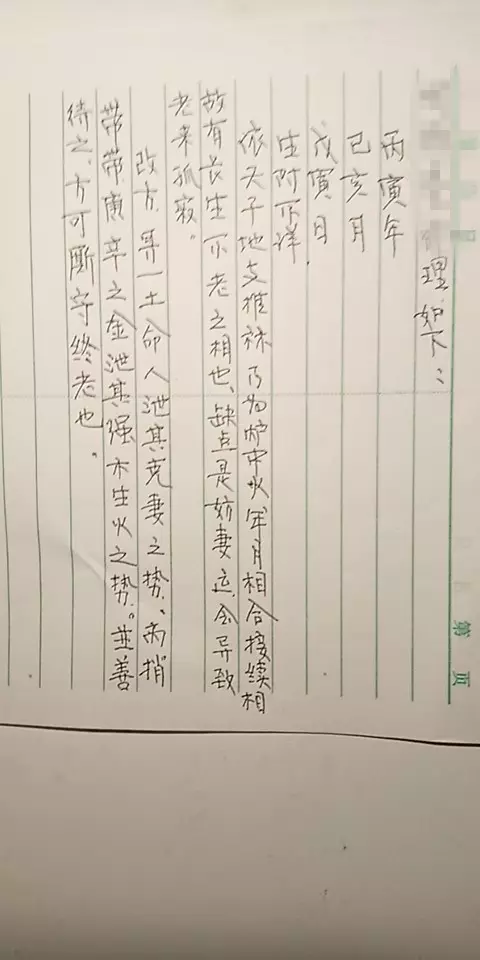 第 页
理如下:
丙寅年
已亥月
戊寅日
生时不详.
依天干地支推乃为炉中火年月相合接续相
故有长生不老之相也、缺点是妨妻运,会导致
老来孤寂。
改方,寻一土命人泄其克妻之势、而稍
带带庚辛之金泄其强木生火之势。並善
待之、方可断守终老也。